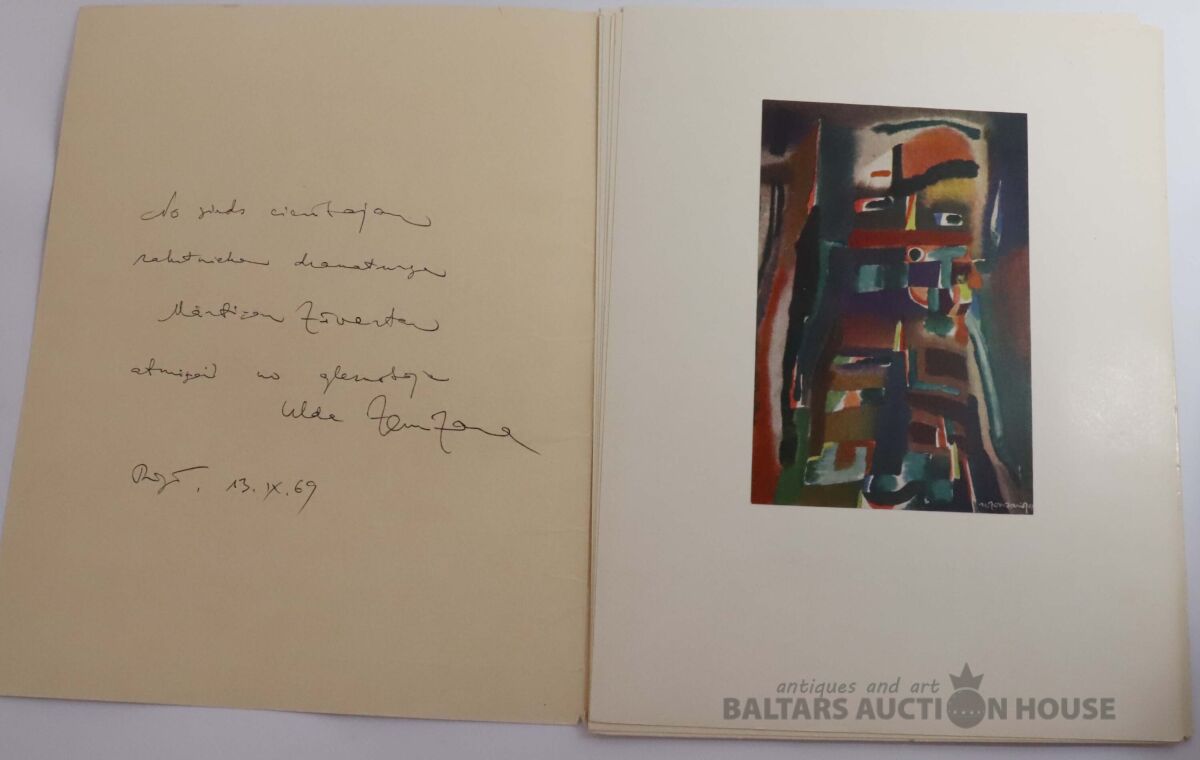 No sirds cienītajam
rakstniekam dramaturgam
Mārtiņam Zīvertam
atmiņai no gleznotāja
Ulda Zemzara
Rīgā, 13.IX.69
antiques and art
BALTARS AUCTION HOUSE